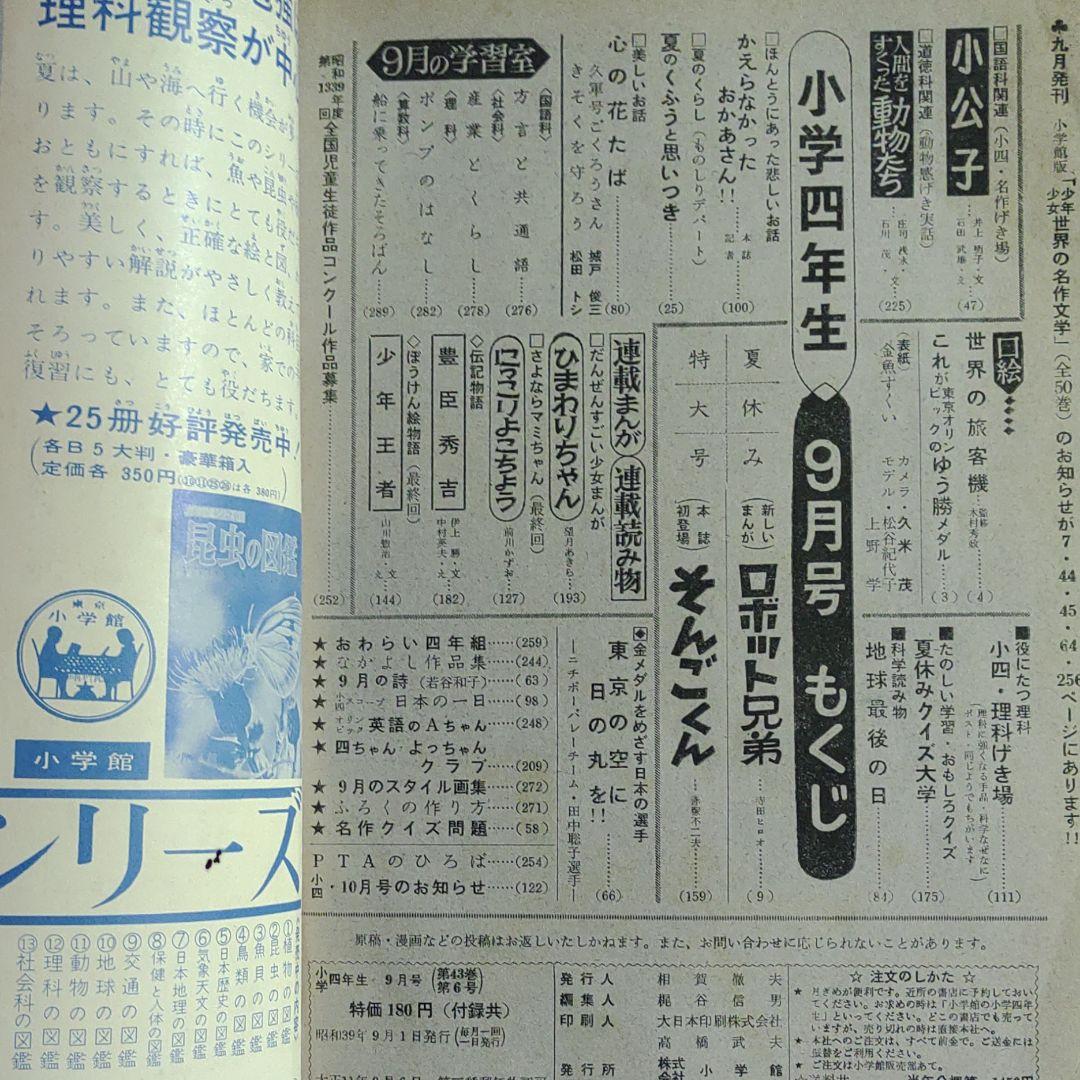 理科観察が中
夏は、山や海へ行く機会が
ります。その時にこのシリ
おともにすれば、魚や昆虫や
を観察するときにとても役
す。美しく、正確な絵と図、
りやすい解説がやさしく教え
れます。また、ほとんどの
そろっていますので、家での
復習にも、とても役だちます。
★25冊好評発売中!
(各B5大判・豪華箱入
定価各 350円
昆虫の図鑑
東京
小学館
小学館
シリーズ
①植物の図鑑
②昆虫の図鑑
③魚貝の図鑑
④鳥類の図鑑
⑤日本歴史の図鑑
⑥気象天文の図鑑
⑦日本地理の図鑑
⑧保健と人体の図鑑
⑨交通の図鑑
⑩地球の図鑑
⑪動物の図鑑
⑫理科の図鑑
⑬社会科の図鑑
♣九月発刊 小学館版、「少年少女世界の名作文学」(全50巻)のお知らせが7・44・45・64・256ページにあります!!
小学四年生 9月号 もくじ
□国語科関連(小四・名作げき場)
小公子
(47)
□道徳科関連(動物感げき実話)
人間をすくった動物たち
(225)
□ほんとうにあった悲しいお話
かえらなかったおかあさん!!
本誌記者
(100)
□夏のくらし(ものしりデパート)
夏のくふうと思いつき
(25)
□美しいお話
心の花たば
久軍号ごくろうさん 城戸俊三
きそくを守ろう 松田トシ
(80)
9月の学習室
〈国語科〉
方言と共通語
(276)
〈社会科〉
産業とくらし
(278)
〈理科〉
ポンプのはなし
(282)
〈算数科〉
船に乗ってきたそろばん
(289)
昭和39年度第13回全国児童生徒作品コンクール作品募集
(252)
口絵
世界の旅客機
監修・木村秀政
(4)
これが東京オリンピックのゆう勝メダル
(3)
(表紙)
金魚すくい
カメラ・久米茂
モデル・松谷紀代子
上野学
夏休み特大号
(新しいまんが)
ロボット兄弟
寺田ヒロオ
(9)
(本誌初登場)
そんごくん
赤塚不二夫
(159)
連載まんが
連載読み物
□だんぜんすごい少女まんが
ひまわりちゃん
望月あきら
(193)
□さよならマミちゃん(最終回)
にっこりよこちょう
前川かずお
(127)
◇伝記物語
豊臣秀吉
伊上勝・文
中村英夫・え
(182)
◇ぼうけん絵物語(最終回)
少年王者
山川惣治 文え
(144)
■役にたつ理科
小四・理科げき場
(理科に強くなる手品・科学なぜなに
ポスト・同じようでもちがいます)
(111)
■たのしい学習・おもしろクイズ
夏休みクイズ大学
(175)
■科学読み物
地球最後の日
(84)
◆金メダルをめざす日本の選手
東京の空に日の丸を!!
―ニチボーバレーチーム・田中聡子選手―
(66)
★おわらい四年組……(259)
★なかよし作品集……(244)
★9月の詩(若谷和子)……(63)
★小四スコープ 日本の一日……(98)
★オリンピック 英語のAちゃん……(248)
★四ちゃん・よっちゃんクラブ……(209)
★9月のスタイル画集……(272)
★ふろくの作り方……(271)
★名作クイズ問題……(58)
PTAのひろば……(254)
小四・10月号のお知らせ……(122)
原稿・漫画などの投稿はお返しいたしかねます。また、お問い合わせに応じられないことがあります。
小学四年生 9月号(第43巻第6号)
特価180円(付録共)
昭和39年9月1日発行(毎月一回一日発行)
発行人 相賀徹夫
編集人 梶谷信男
印刷人 大日本印刷株式会社
高橋武夫
発行所 株式会社 小学館
☆ 注文のしかた ☆
★ 月ぎめが便利です。近所の書店に予約しておい
てください。お求めの時は「小学館の小学四年
生」といってください。どこの書店でも売って
いますが、売り切れの時は直接本社へ。
★ 本社へのご注文は、すべて前金で。ご送金には
振替をご利用ください。
★ ご注文は小学館販売部あて。